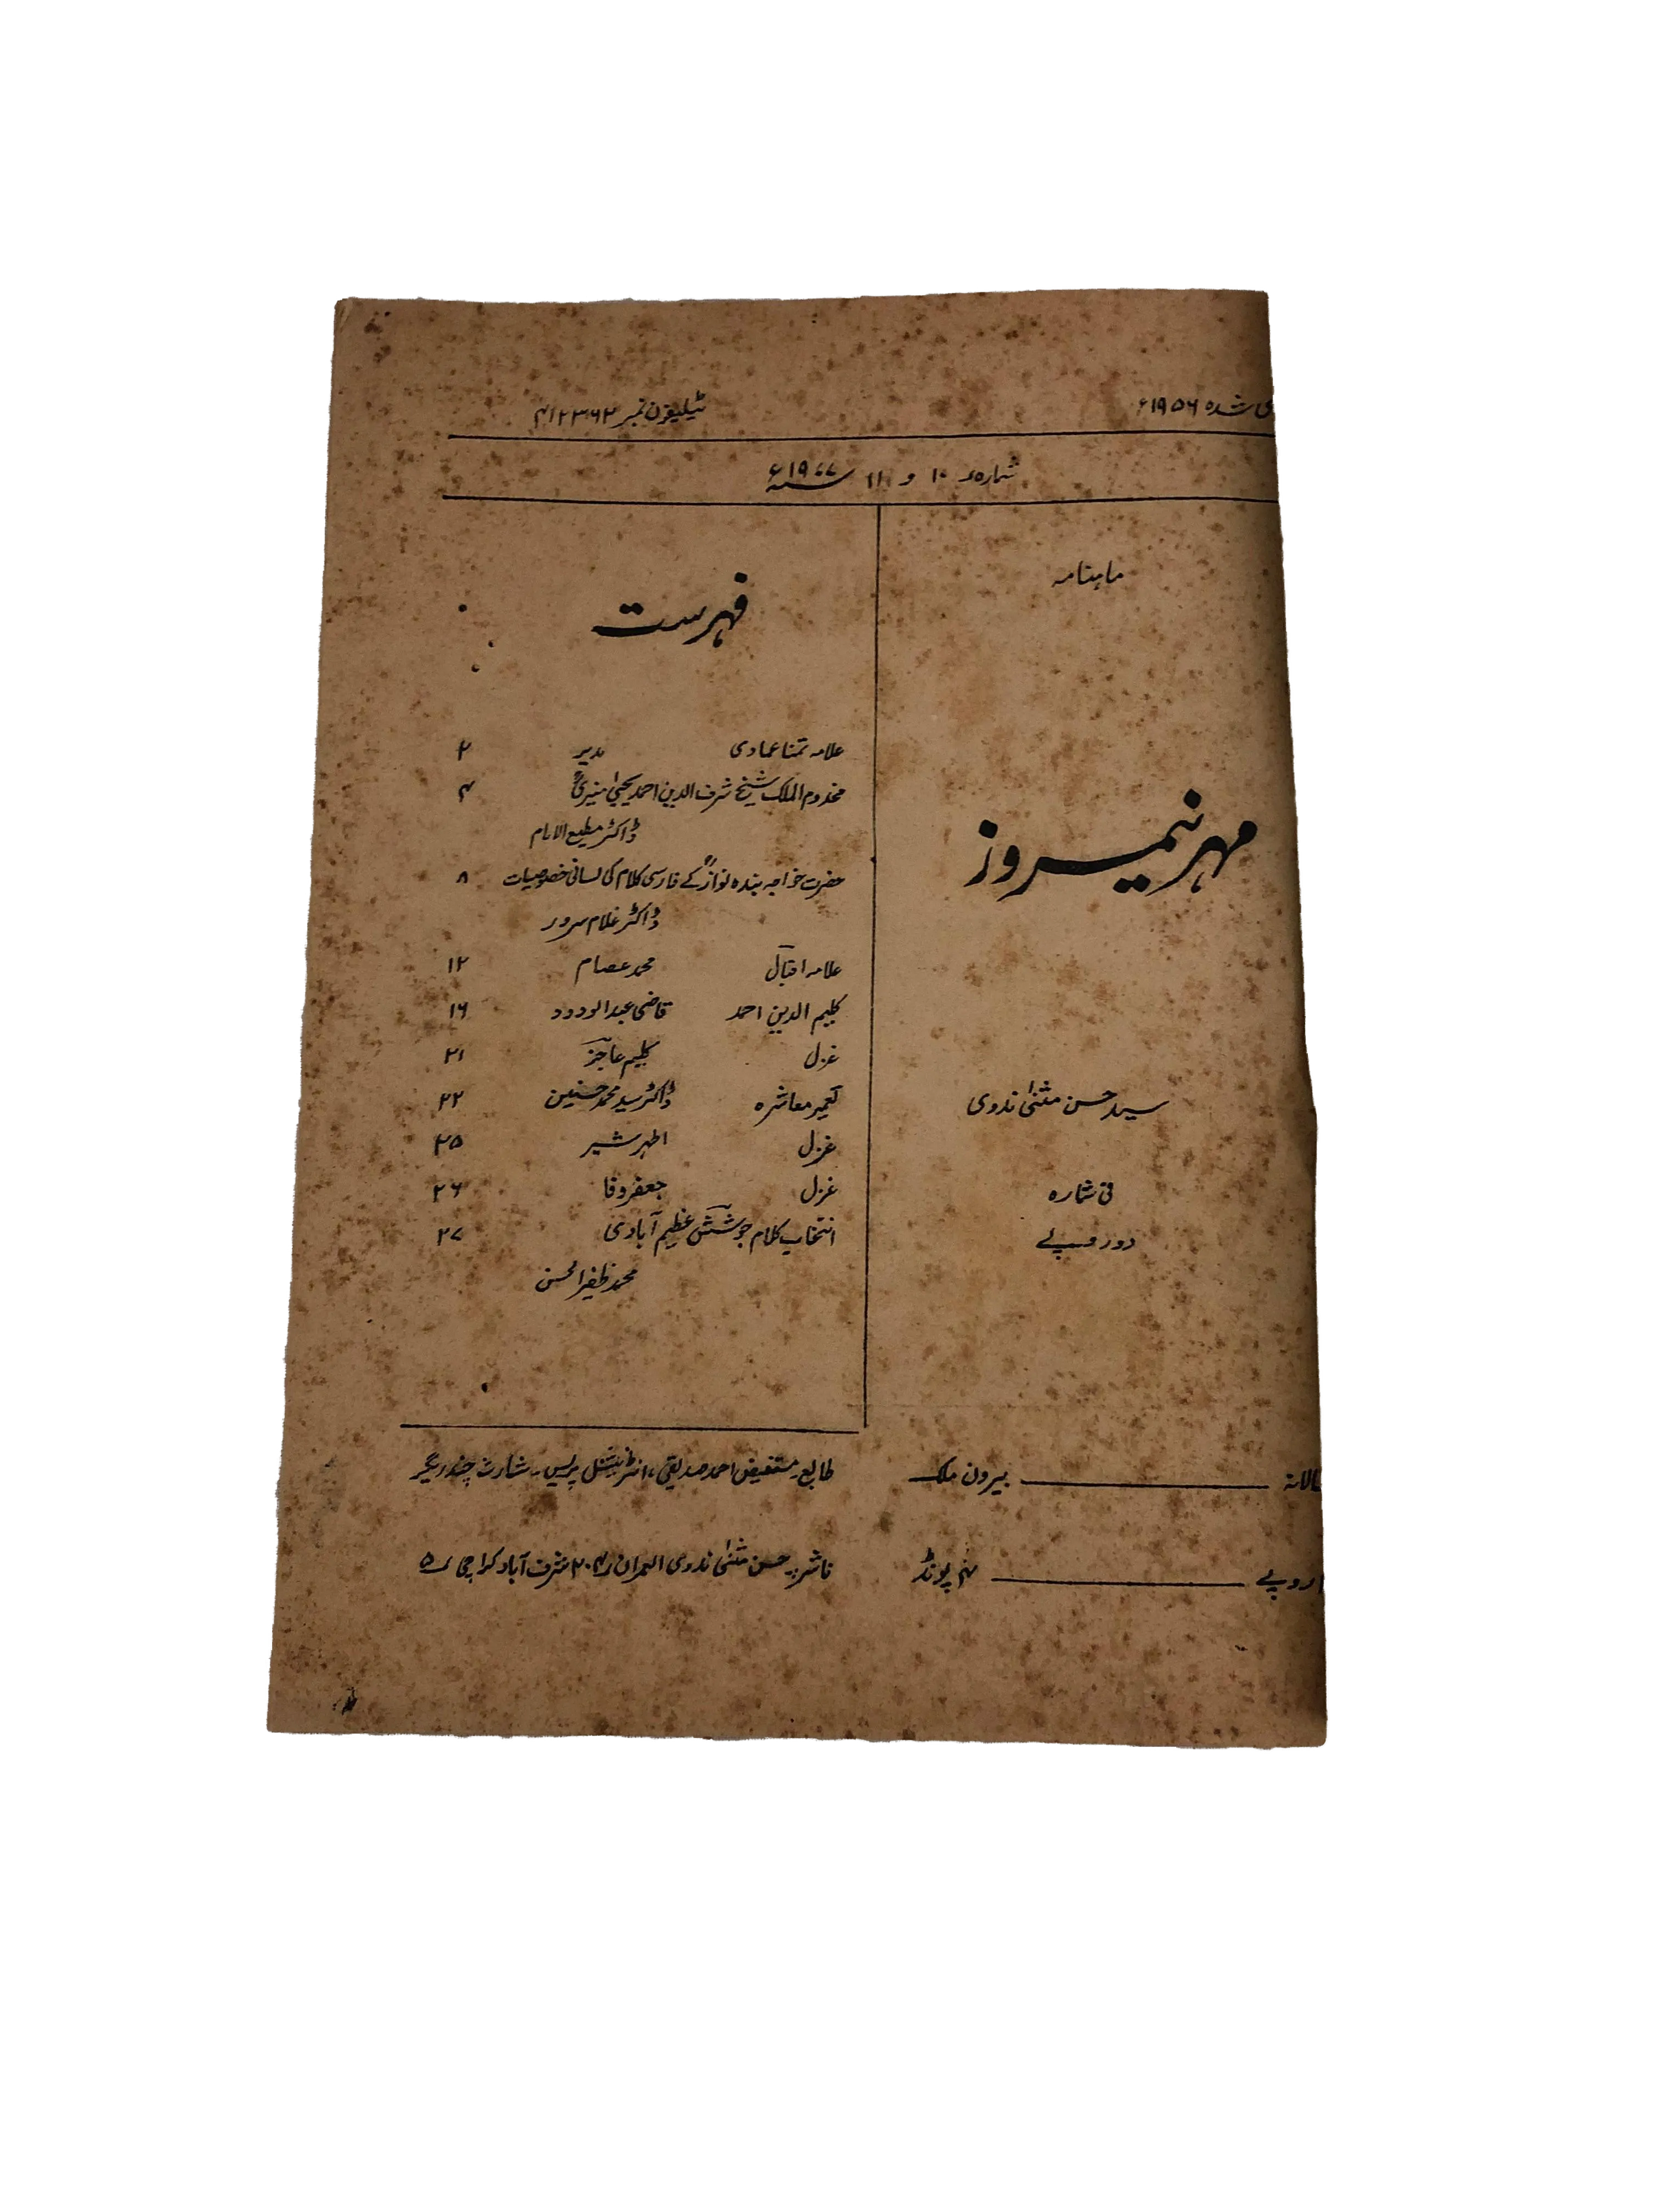 شدہ ۱۹۵۶ء
ٹیلیفون نمبر ۴۱۲۳۶۲
شمارہ ۱۰ و ۱۱ سنہ ۱۹۷۷ء
ماہنامہ
مہر نیمروز
سید حسن مثنیٰ ندوی
فی شمارہ
دو روپے
بیرون ملک
روپے ۴ پونڈ
فہرست
علامہ تمنا عمادی مدیر ۲
مخدوم الملک شیخ شرف الدین احمد یحییٰ منیریؒ ۴
ڈاکٹر مطیع الامام
حضرت خواجہ بندہ نوازؒ کے فارسی کلام کی لسانی خصوصیات ۸
ڈاکٹر غلام سرور
علامہ اقبال محمد عصام ۱۲
کلیم الدین احمد قاضی عبدالودود ۱۶
غزل کلیم عاجز ۲۱
تعمیر معاشرہ ڈاکٹر سید محمد حسنین ۲۲
غزل اطہر شیر ۲۵
غزل جعفر وفا ۲۶
انتخاب کلام جوشش عظیم آبادی ۲۷
محمد ظفیر الحسن
طابع۔ مستفیض احمد صدیقی، انٹرنیشنل پریس۔ شارت چندریگر
ناشر۔ حسن مثنیٰ ندوی العمران ۲۰۴ شرف آباد کراچی ۵